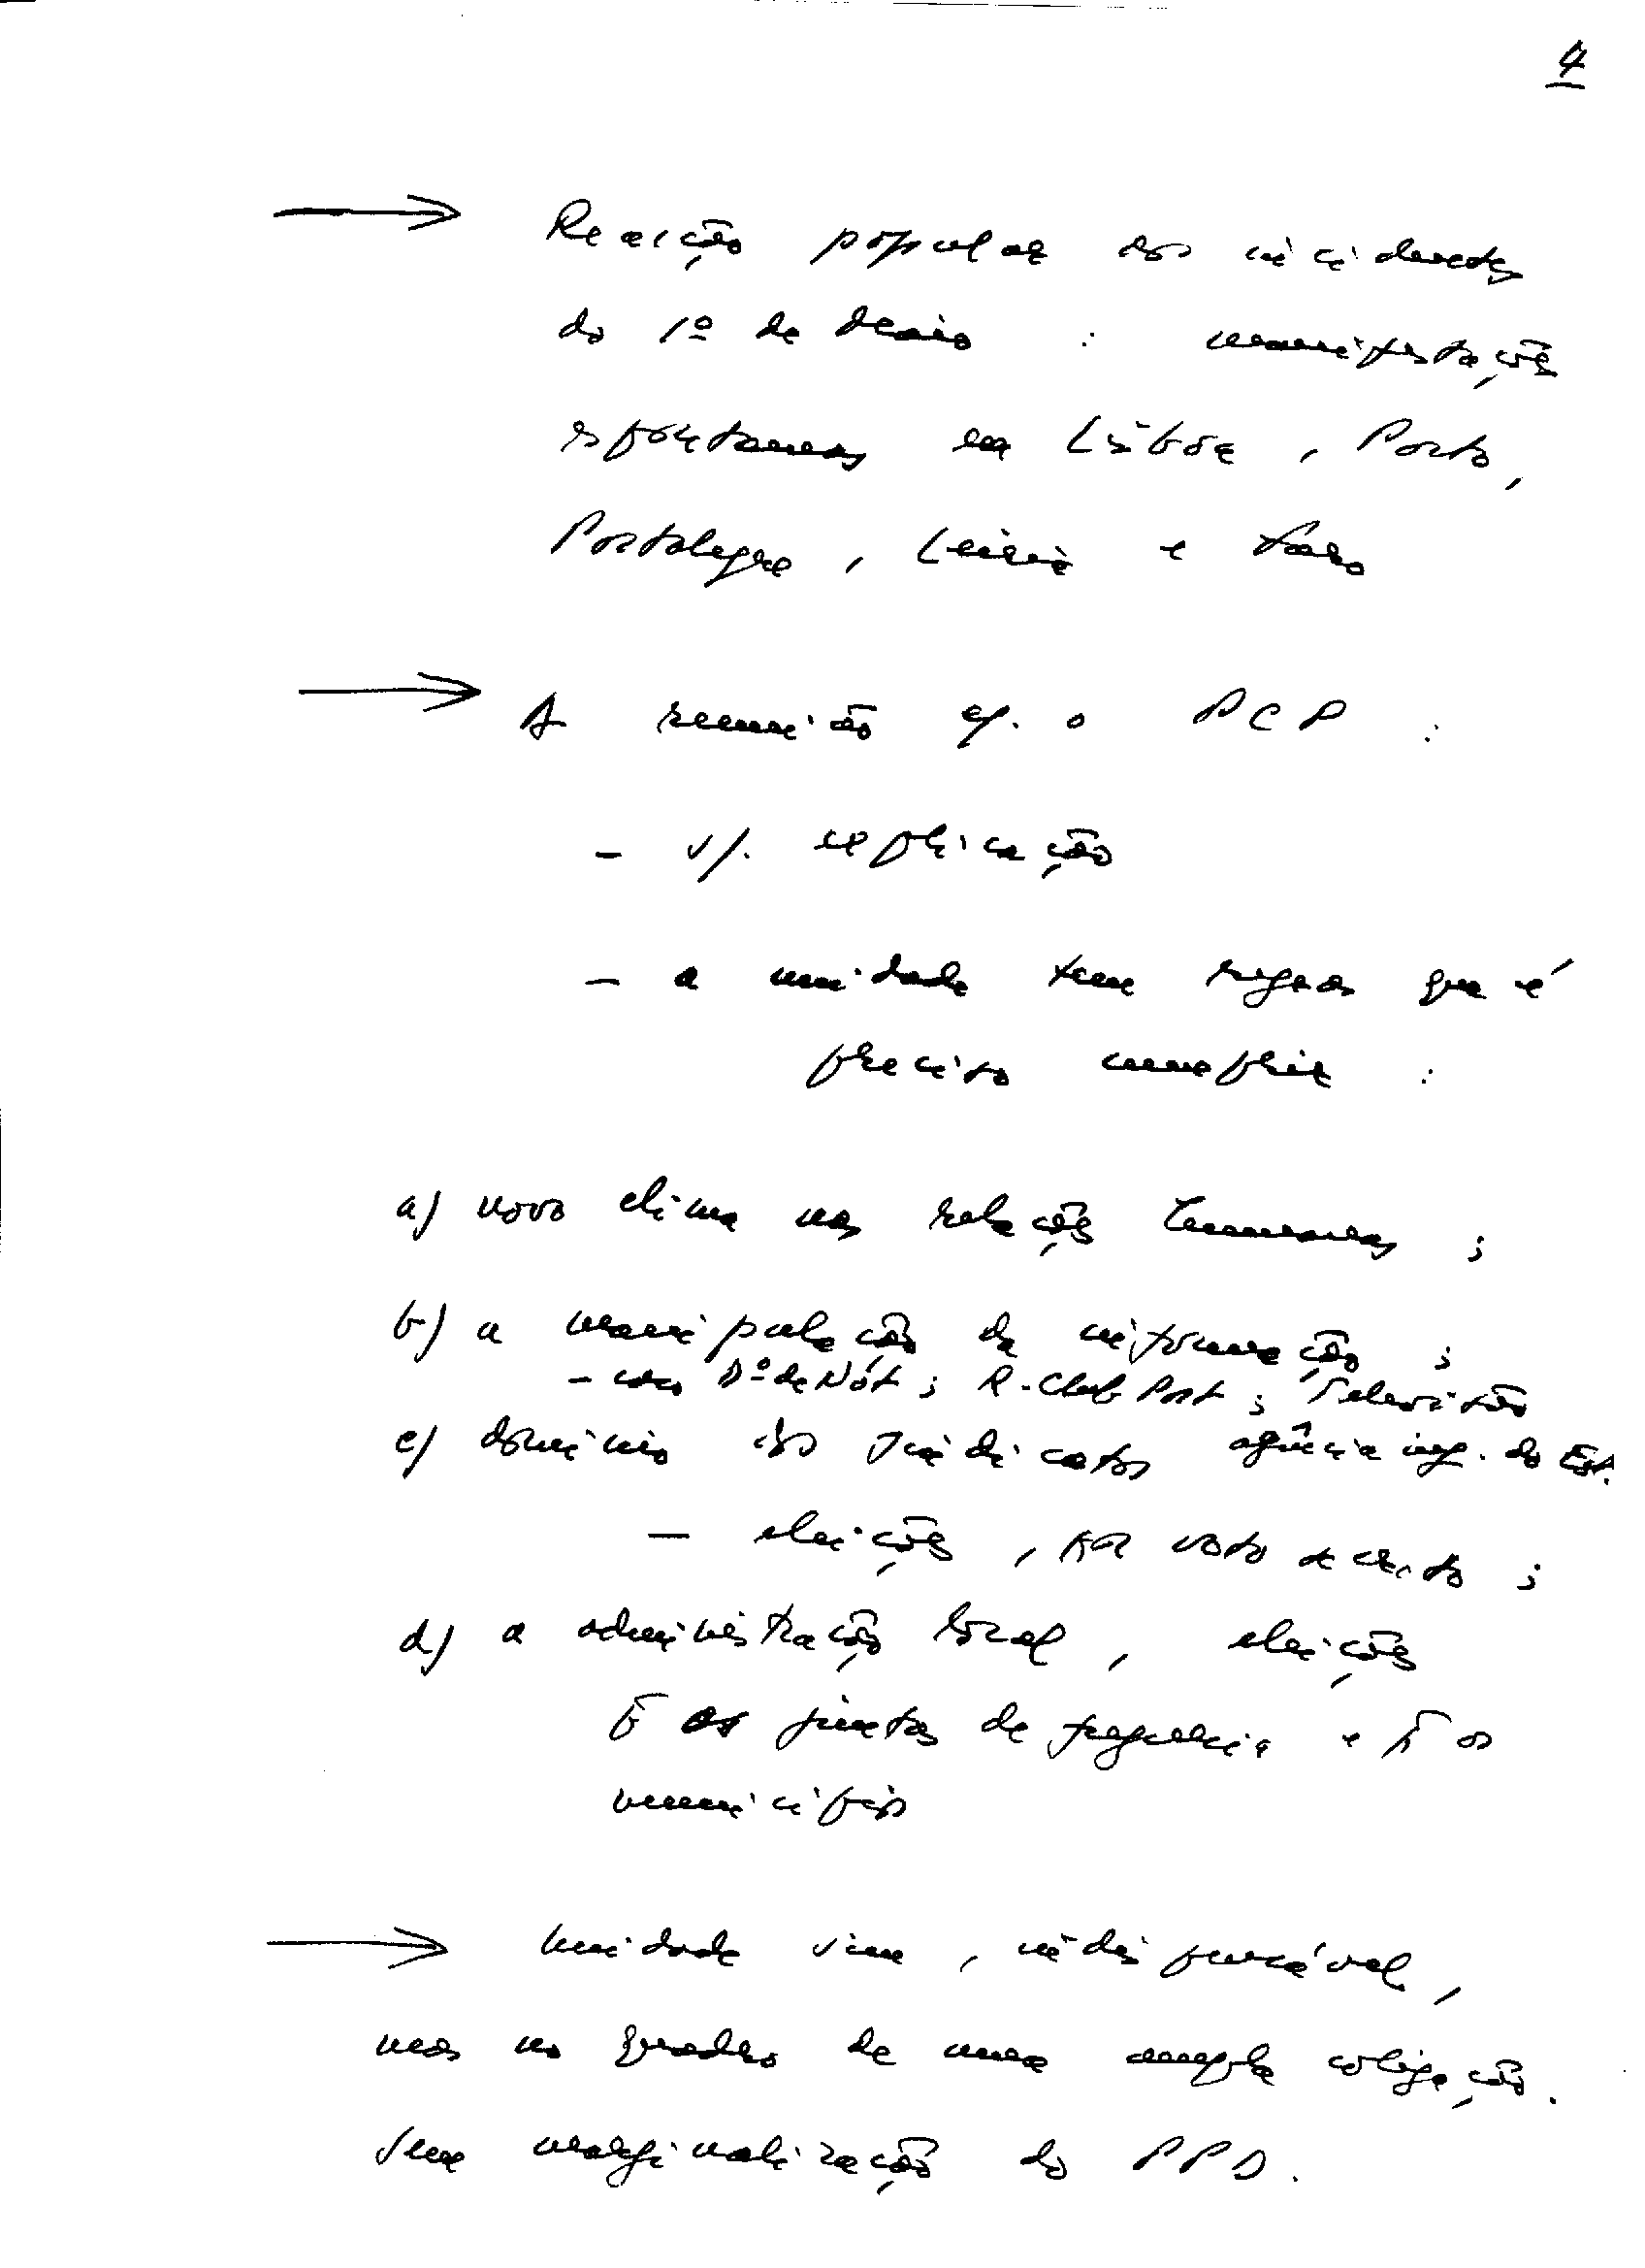 4
→ Reacção popular aos incidentes
do 1º de Maio : manifestações
espontaneas em Lisboa, Porto,
Portalegre, Leiria e Faro
→ A reunião c/. o PCP :
- s/. explicação
- a unidade tem regras que é
preciso cumprir :
a) novo clima nas relações humanas ;
b) a manipulação da informação ;
- caso Dº de Nót ; R. Club Port ; Televisão
c) domínio dos sindicatos agência inf. do Est.
- eleições, por voto secreto ;
d) a administração local, eleições
as juntas de freguesia e os
municípios
→ Unidade sim, indispensável,
mas no quadro de uma ampla coligação.
Sem marginalização do PPD.